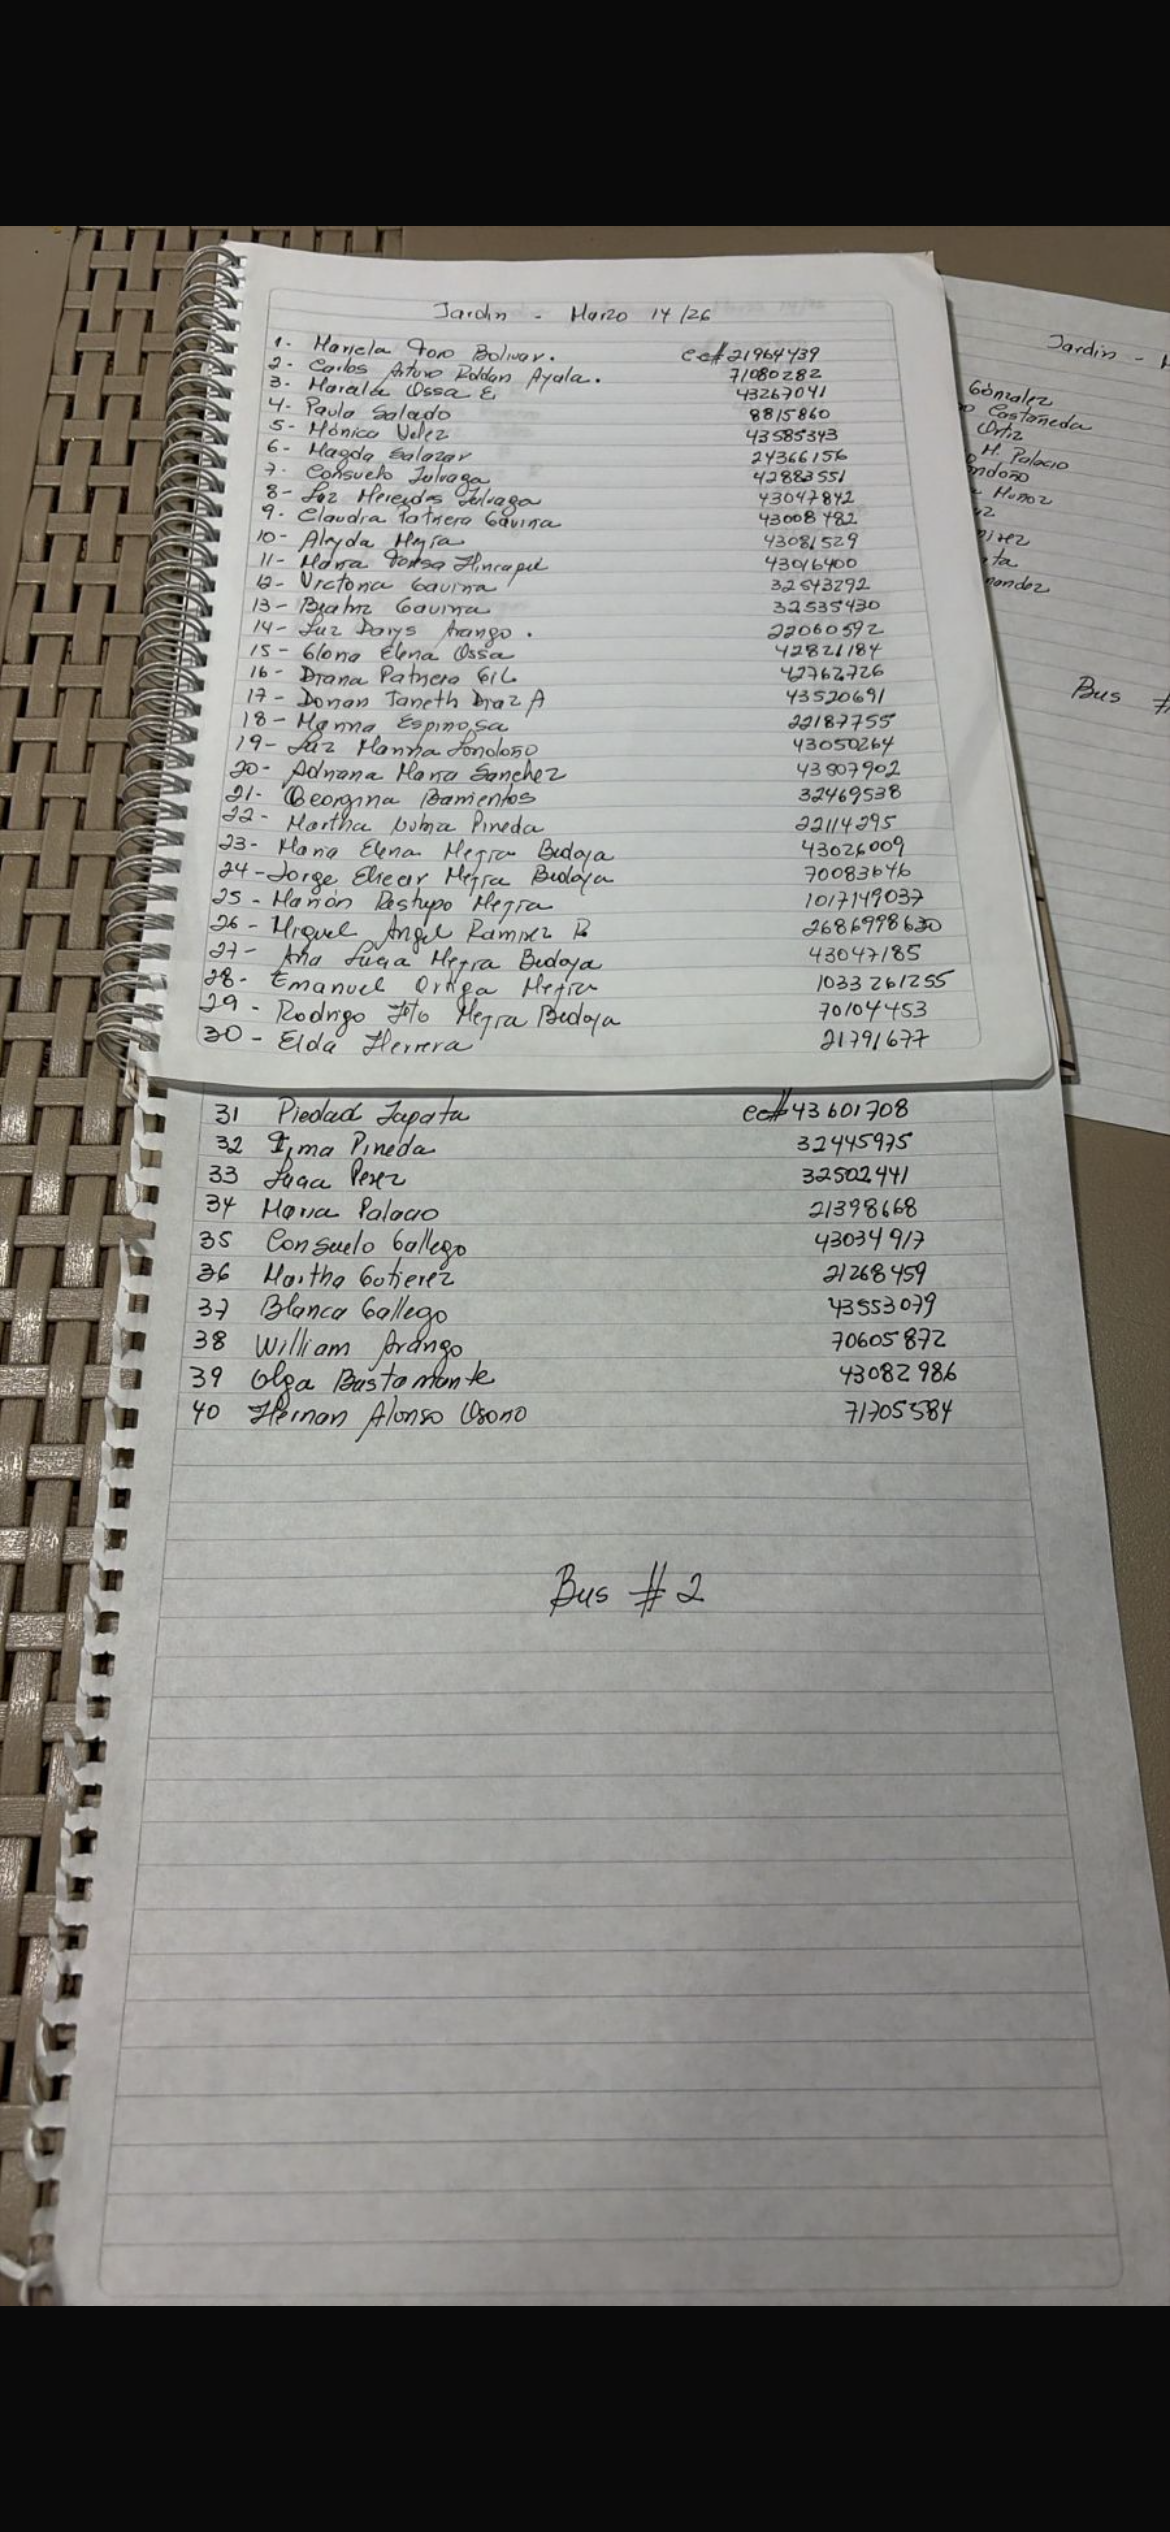 Jardin - Marzo 14/26
1. Mariela Toro Bolivar. cc# 21964439
2. Carlos Arturo Roldan Ayala. 71080282
3. Ossa E 43267041
4. Paula Salgado 8815860
5 - Mónica Velez 43585343
6 - Magda Salazar 24366156
7. Consuelo Zuluaga 42883551
8 - Luz Mercedes Zuluaga 43047842
9. Claudia Patricia Gaviria 43008482
10 - Aleyda Mejia 43081529
11 - Maria Hincapié 43016400
12 - Victoria Gaviria 32543292
13 - Beatriz Gaviria 32535430
14 - Luz Darys Arango. 22060592
15 - Gloria Elena Ossa 42821184
16 - Diana Patricia Gil 42762726
17 - Janeth Diaz A 43520691
18 - Marina Espinosa 22187755
19 - Luz Marina Londoño 43050264
20 - Adriana Maria Sanchez 43807902
21 - Georgina Barrientos 32469538
22 - Martha Pineda 22114295
23 - Maria Elena Mejia Bedoya 43026009
24 - Jorge Eliecer Mejia Bedoya 70083646
25 - Marion Restrepo Mejia 1017149037
26 - Miguel Angel Ramirez B 2686998630
27 - Ana Lucia Mejia Bedoya 43047185
28 - Emanuel Ortega Mejia 1033261255
29 - Rodrigo Mejia Bedoya 70104453
30 - Elda Herrera 21791677
31 Piedad Zapata cc# 43601708
32 Irma Pineda 32445975
33 Lucia Perez 32502441
34 Maria Palacio 21398668
35 Consuelo Gallego 43034917
36 Martha Gutierez 21268459
37 Blanca Gallego 43553079
38 William Arango 70605872
39 Olga Bustamante 43082986
40 Hernan Alonso Osorio 71705584
Bus # 2
Jardin -
Gónzalez
Castañeda
Ortiz
M. Palacio
Muñoz
Bus #